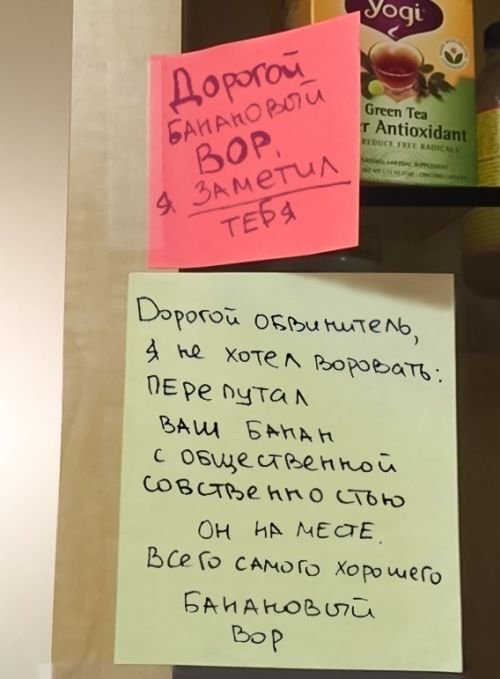 yogi
Green Tea
r Antioxidant
REDUCE FREE RADICALS
Дорогой
БАНАНОВЫЙ
ВОР,
я ЗАМЕТИЛ
ТЕБЯ
Дорогой обвинитель,
я не хотел воровать:
ПЕРЕПУТАЛ
ВАШ БАНАН
С ОБЩЕСТВЕННОЙ
СОБСТВЕННОСТЬЮ
ОН НА МЕСТЕ.
ВСЕГО САМОГО ХОРОШЕГО
БАНАНОВЫЙ
ВОР